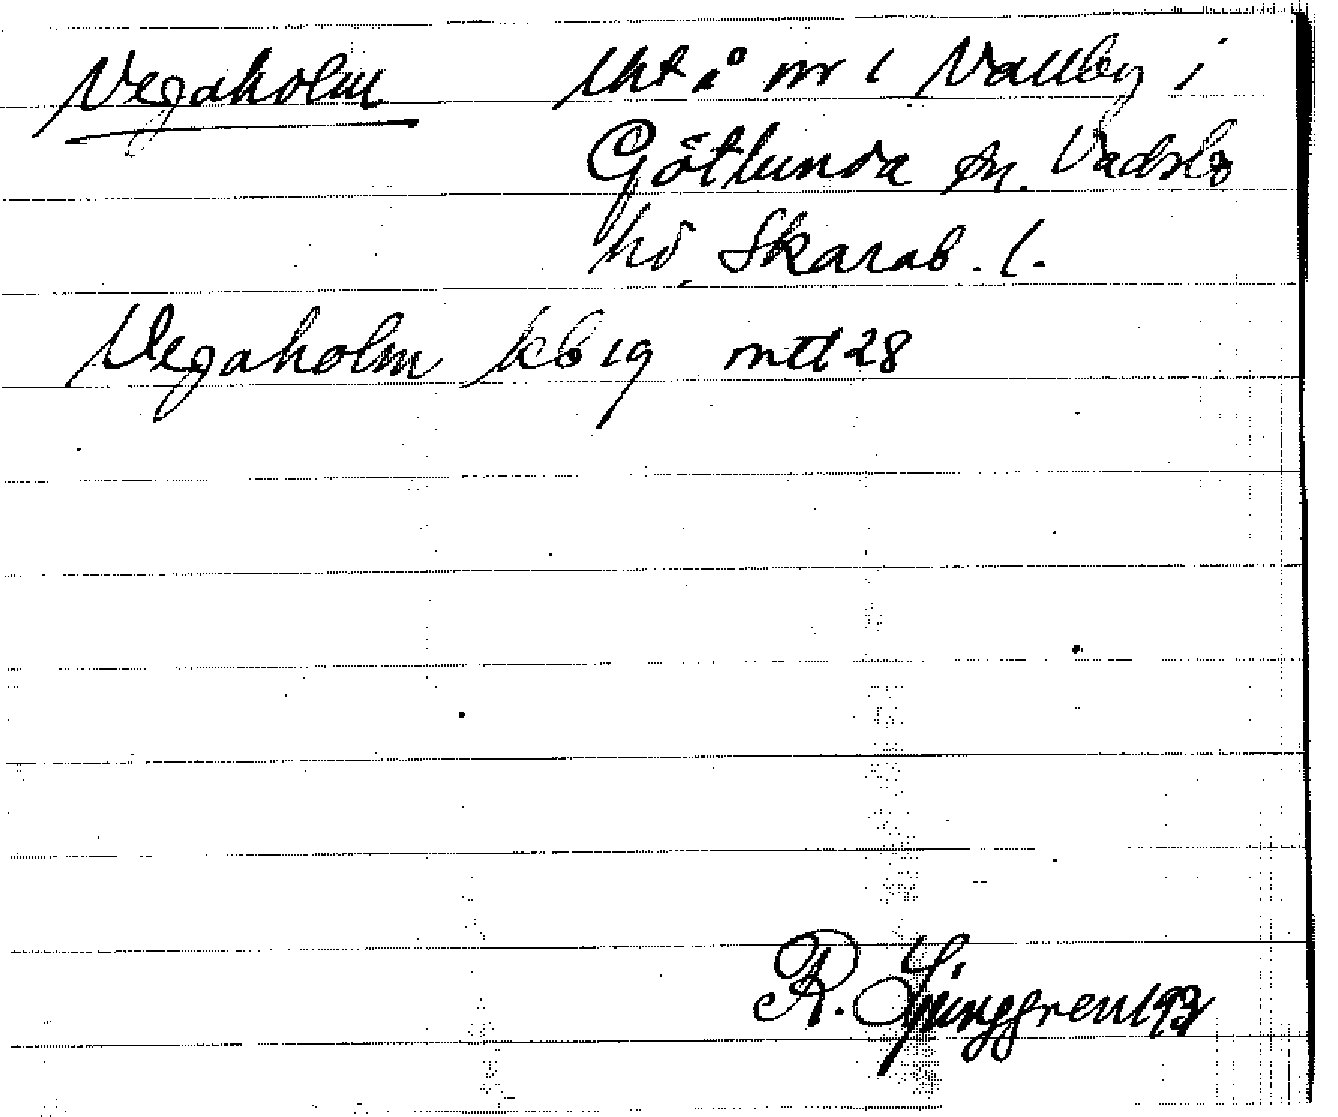 Vegaholm lht å nr 1 Vallby i
Götlunda sn. Vadsbo
hd Skarab. l.
Vegaholm kb 19 mtl 28
R. Ljunggren 193